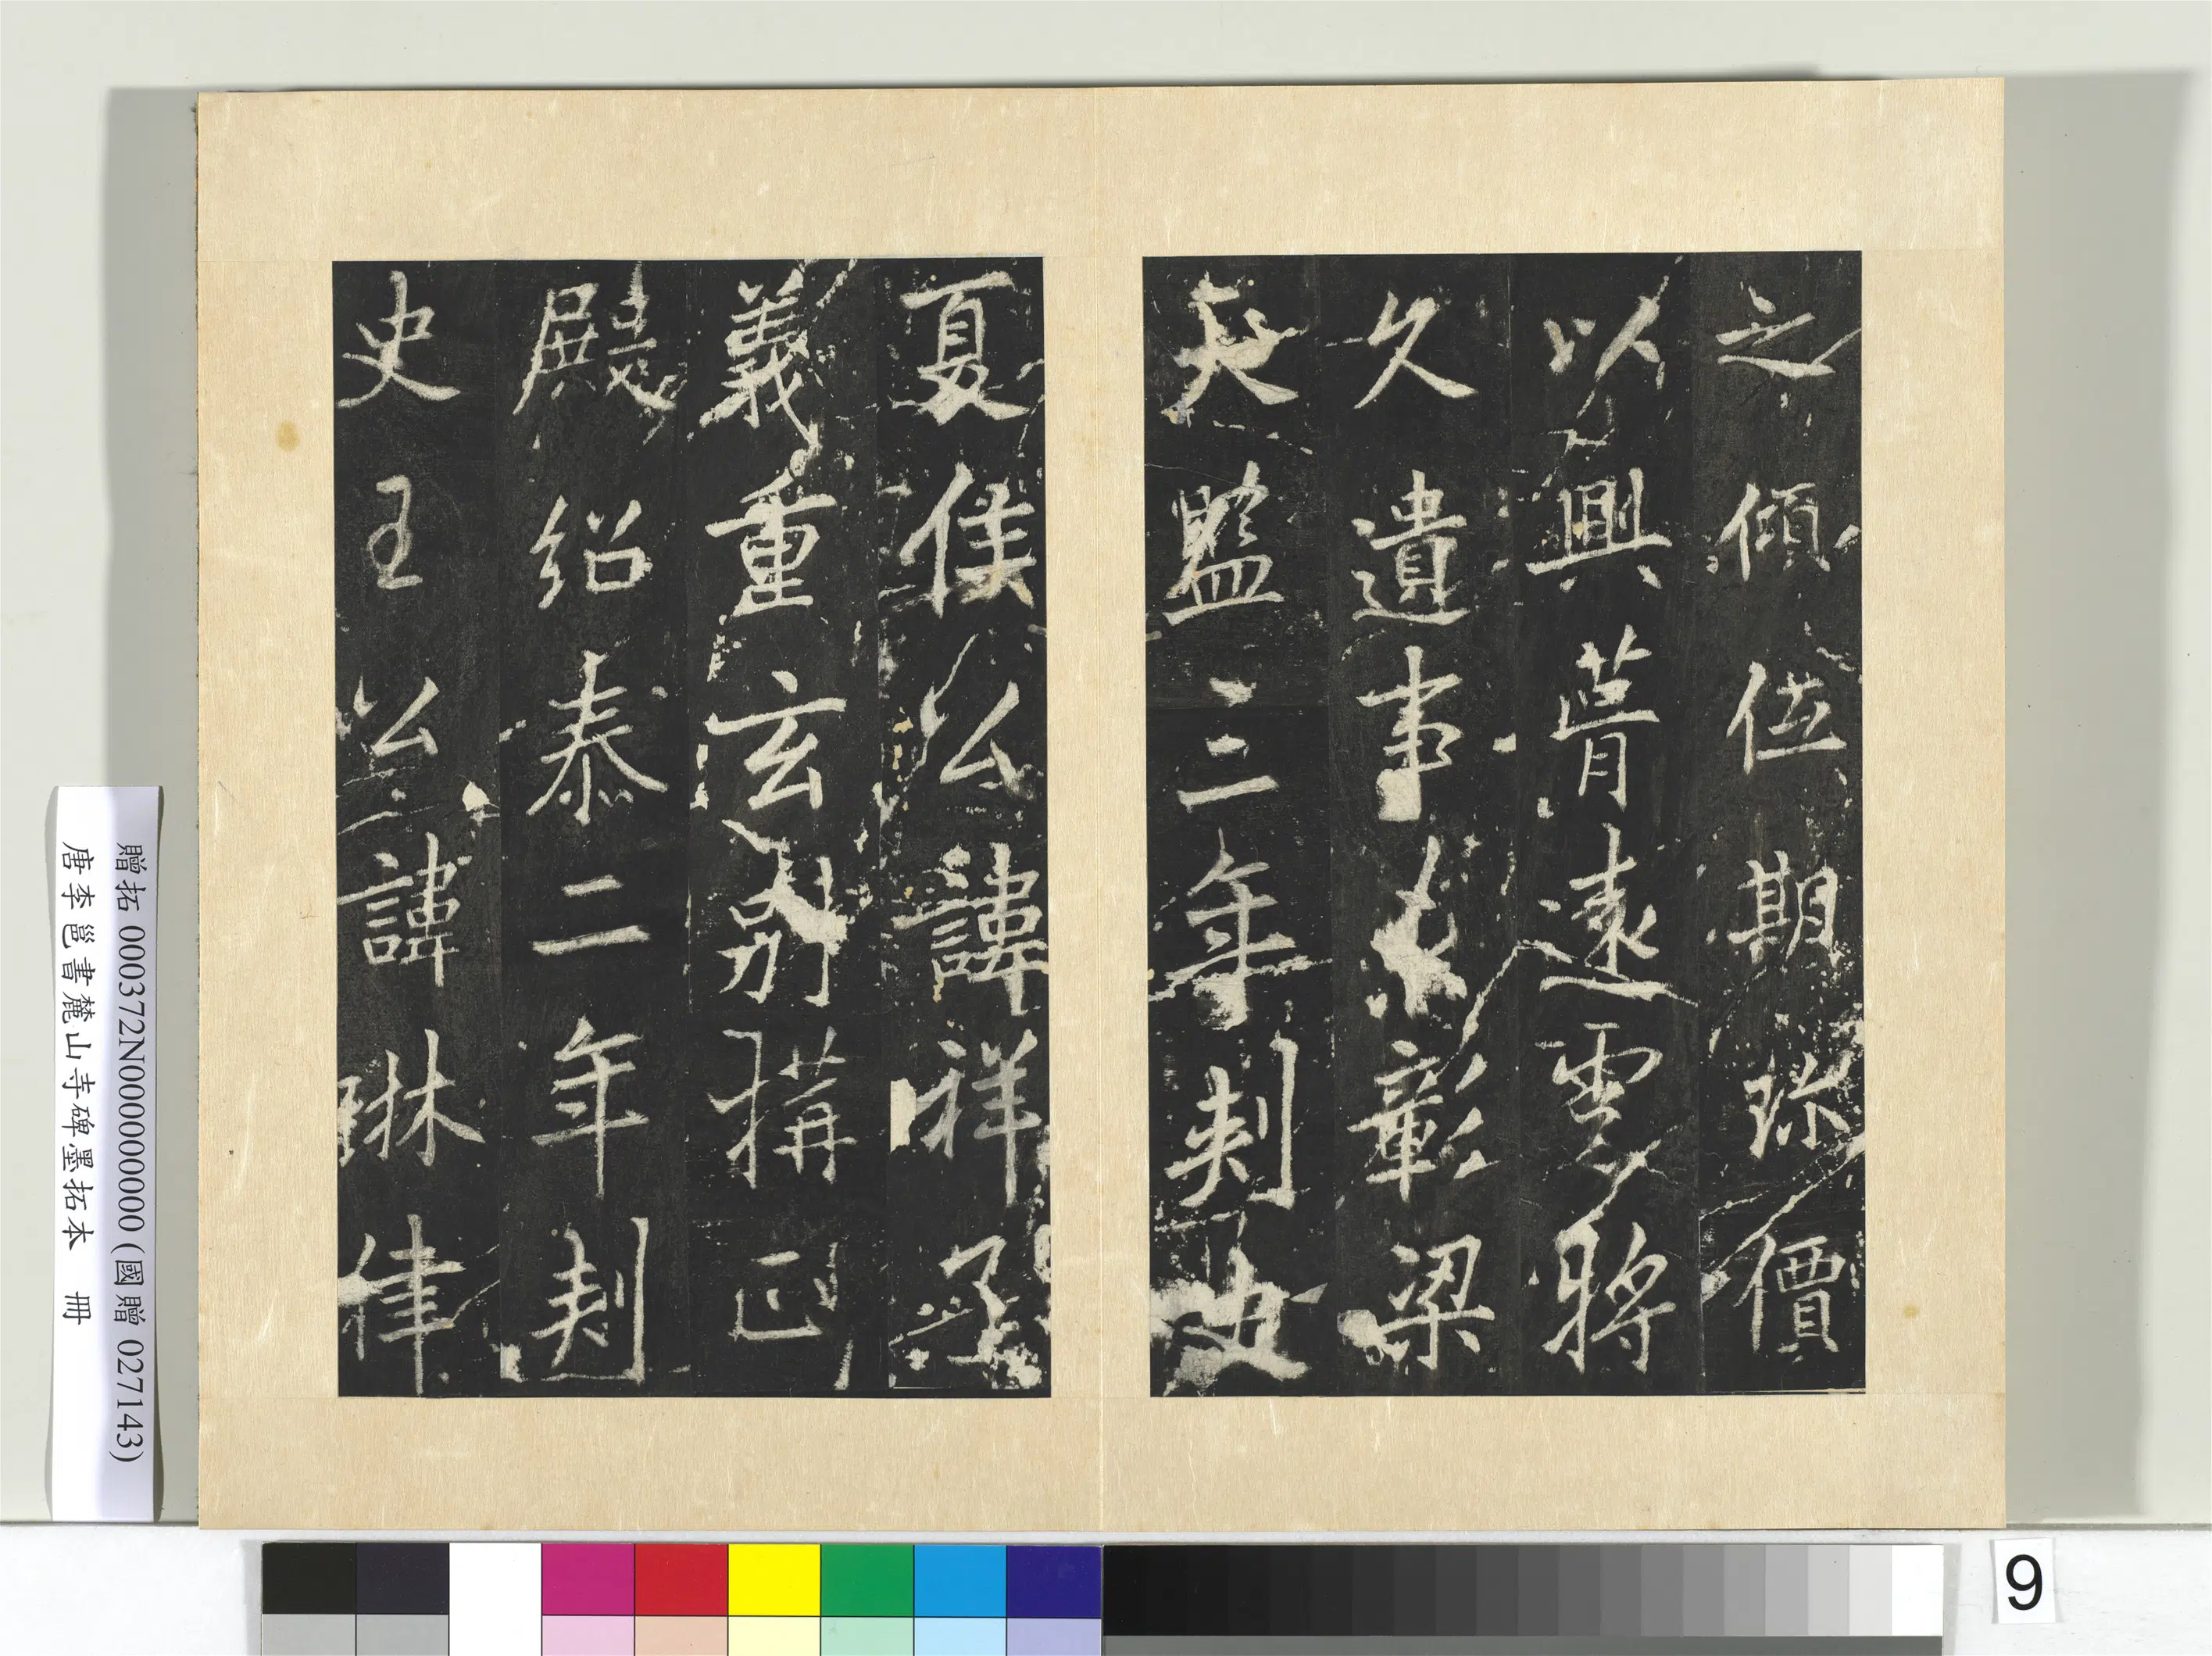 之傾位期珎價
以興蒈遠雲將
久遺事彰梁
天監三年刺史
夏侯公諱祥
義重玄別搆正
殿紹泰二年刺
史王公諱琳律
贈拓 000372N000000000 (國贈 027143)
唐李邕書麓山寺碑墨拓本 冊
9